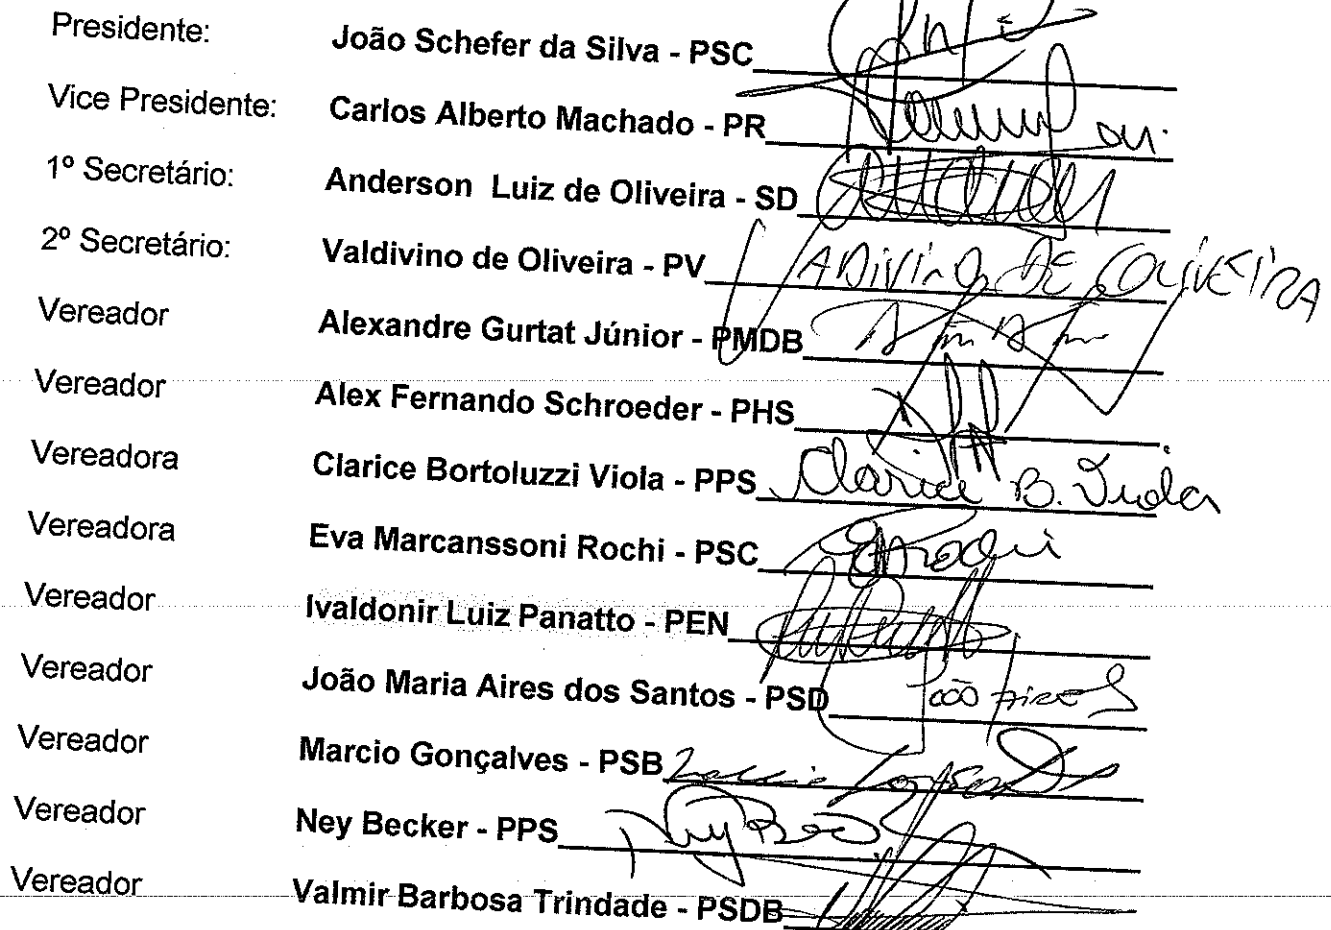 Presidente: João Schefer da Silva - PSC
Vice Presidente: Carlos Alberto Machado - PR
1º Secretário: Anderson Luiz de Oliveira - SD
2º Secretário: Valdivino de Oliveira - PV VADIVINO DE OLIVEIRA
Vereador Alexandre Gurtat Júnior - PMDB
Vereador Alex Fernando Schroeder - PHS
Vereadora Clarice Bortoluzzi Viola - PPS Clarice B. Viola
Vereadora Eva Marcanssoni Rochi - PSC
Vereador Ivaldonir Luiz Panatto - PEN
Vereador João Maria Aires dos Santos - PSD João Aires
Vereador Marcio Gonçalves - PSB
Vereador Ney Becker - PPS
Vereador Valmir Barbosa Trindade - PSDB